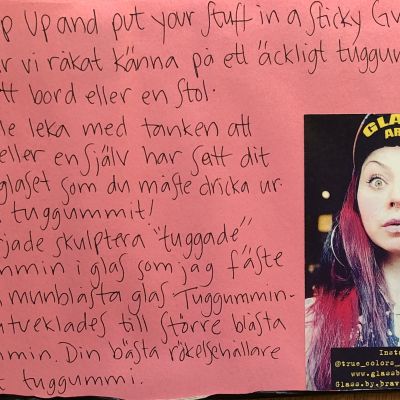 Up and put your stuff in a Sticky
vi råkat känna på ett äckligt
bord eller en stol.
leka med tanken att
eller en själv har satt dit
glaset som du måste dricka ur
tuggummit!
skulptera "tuggade"
i glas som jag fäste
munblåsta glas Tuggummin-
till större blåsta
Din bästa rökelsehållare
tuggummi.
GLAS
AR
Inst
@true_colors_
www.glassb
Glass.by.brav